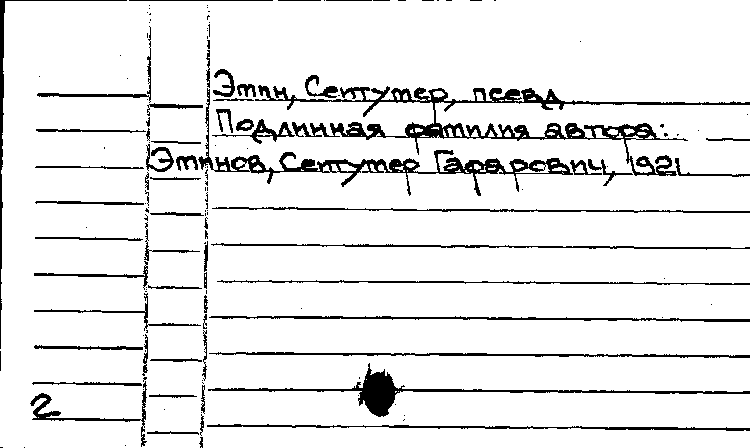 Эмин, Сеитумер, псевд
Подлинная фамилия автора:
Эминов, Сеитумер Гафарович, 1921
2